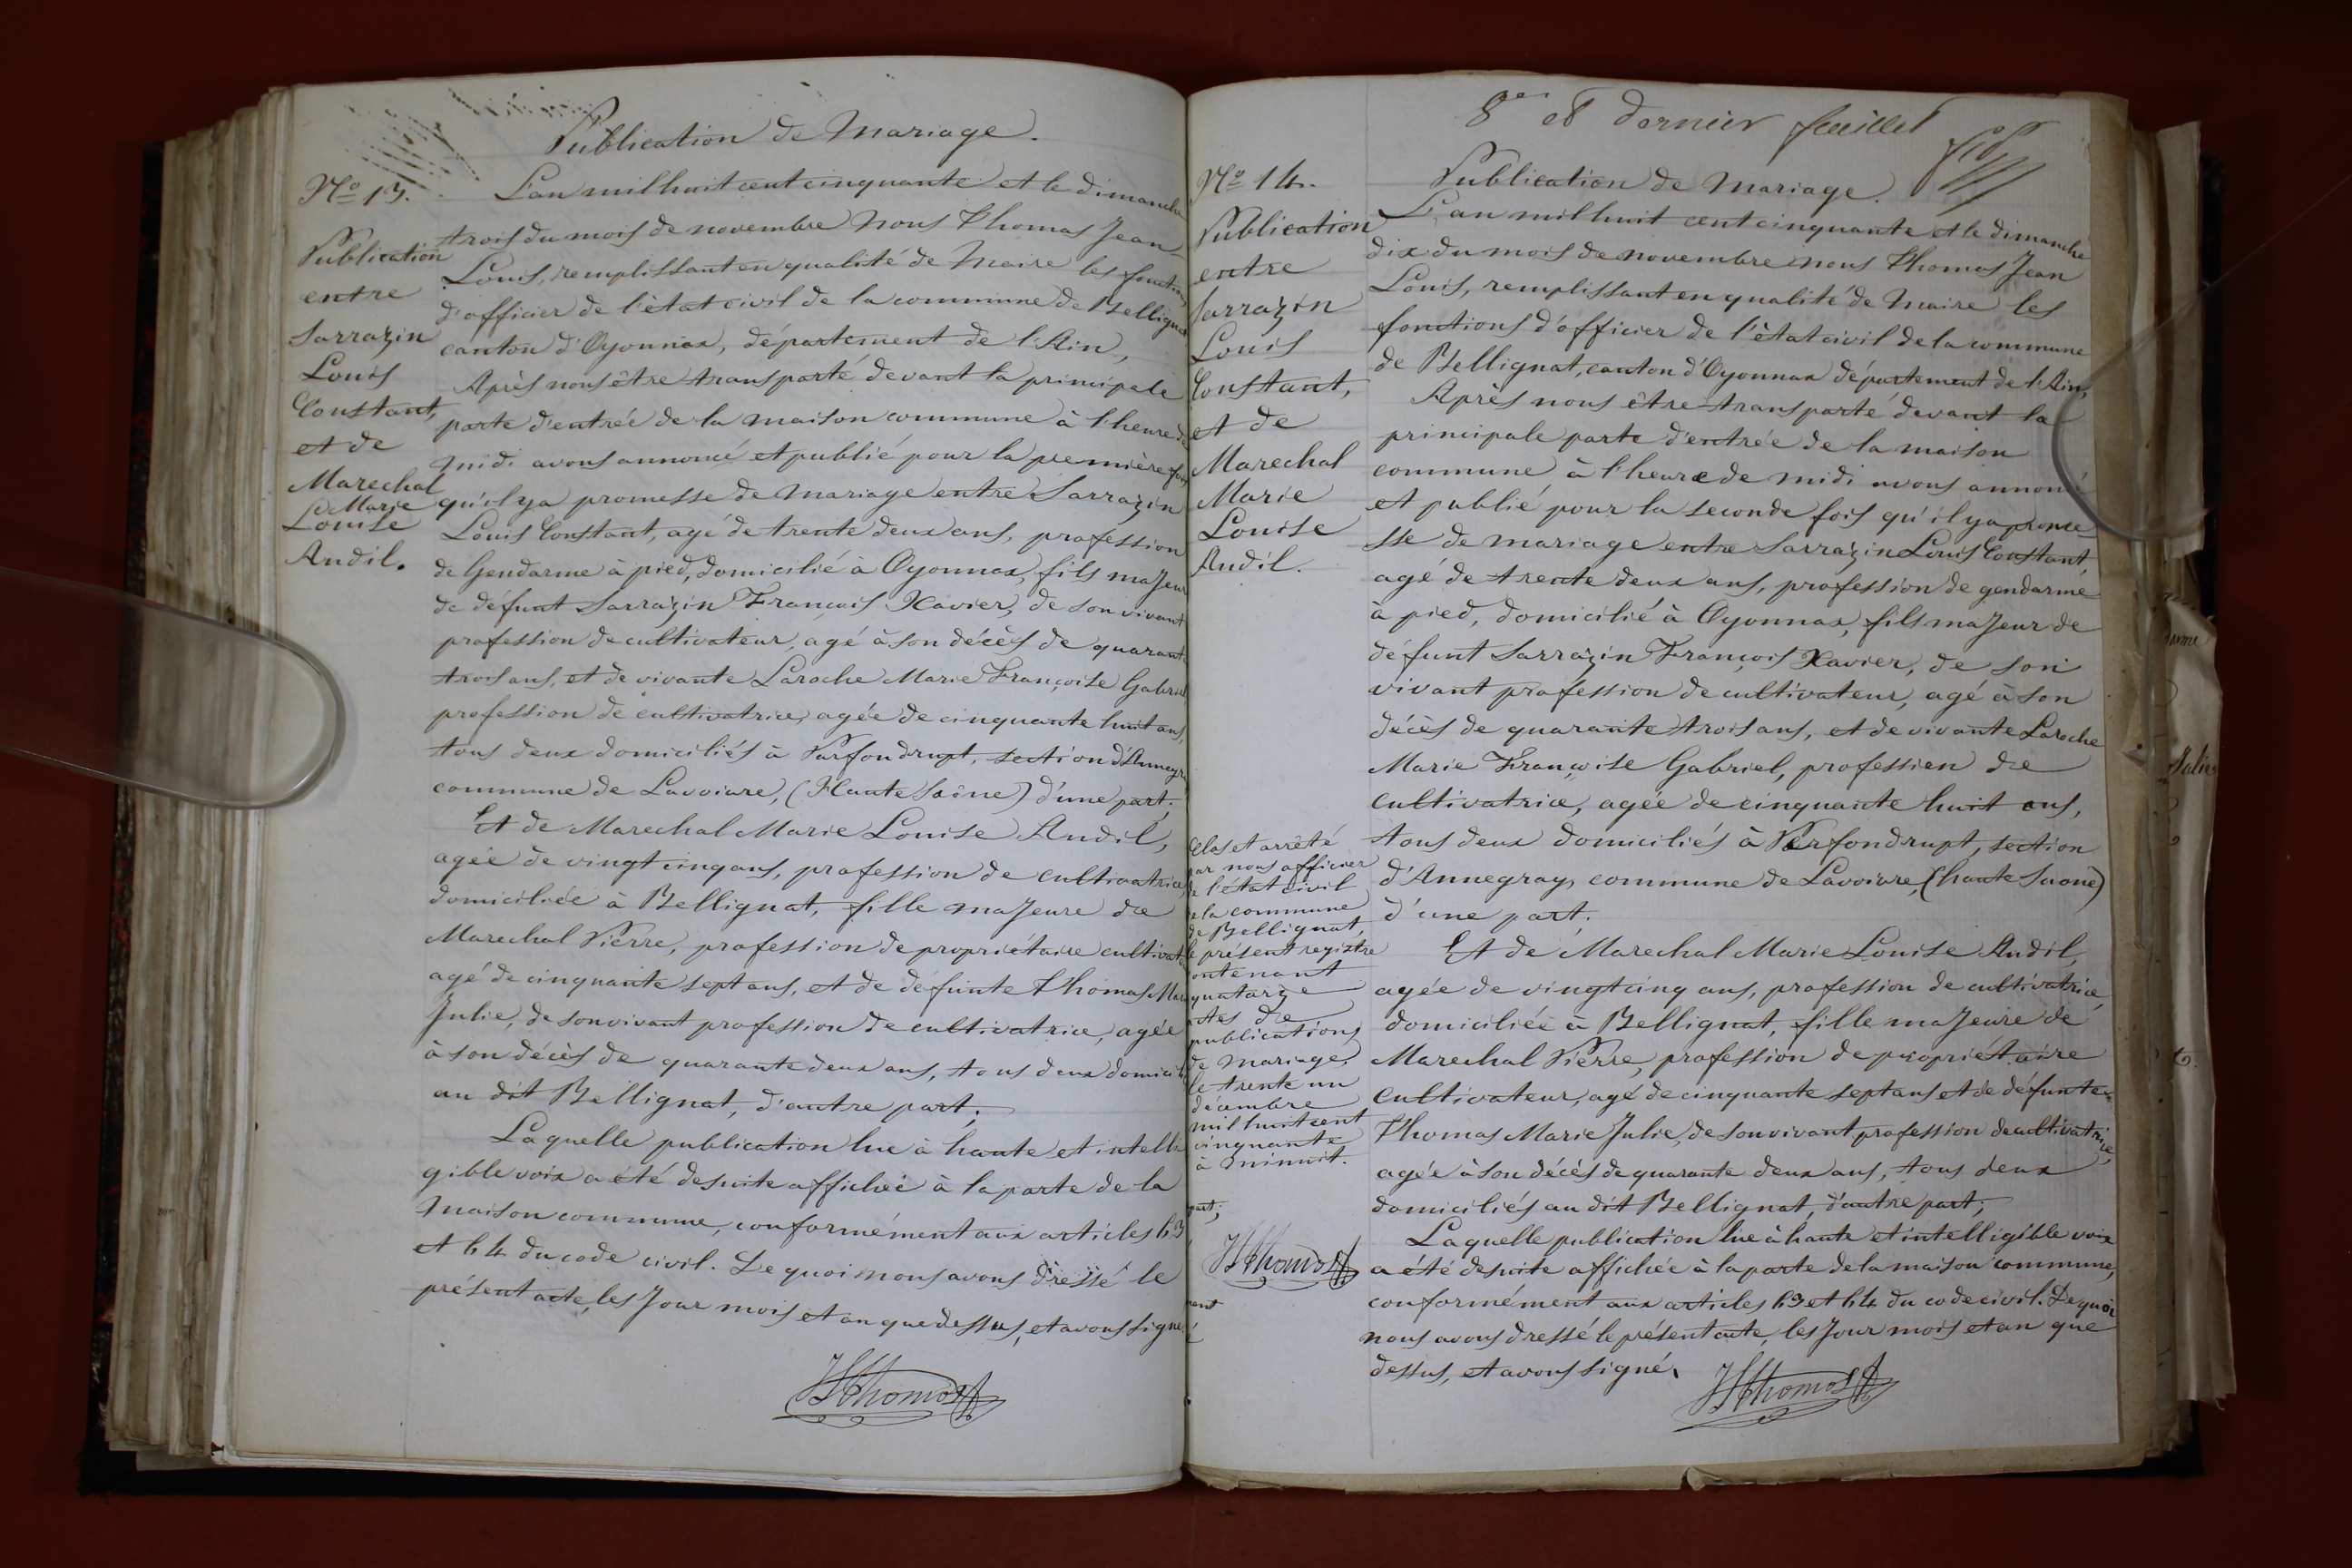 Publication de Mariage.
N.º 13.
Publication
entre
Sarrazin
Louis
Constant,
et de
Marechal
Marie
Louise
Andil.
L'an mil huit cent cinquante et le dimanche
trois du mois de novembre Nous Thomas Jean
Louis, remplissant en qualité de Maire les fonctions
d'officier de l'état civil de la commune de Bellignat
canton d'Oyonnax, département de l'Ain,
Après nous être transporté devant la principale
porte d'entrée de la maison commune à l'heure de
midi avons annoncé et publié pour la première fois
qu'il y a promesse de mariage entre Sarrazin
Louis Constant, agé de trente deux ans, profession
de Gendarme à pied, domicilié à Oyonnax, fils majeur
de défunt Sarrazin François Xavier, de son vivant
profession de cultivateur, agé à son décès de quarante
trois ans, et de vivante Laroche Marie Françoise Gabriel
profession de cultivatrice, agée de cinquante huit ans,
tous deux domiciliés à Parfondrupt, section d'Annegra
commune de Lavoivre, (Haute Saône) d'une part;
Et de Marechal Marie Louise Andil,
agée de vingt cinq ans, profession de cultivatrice,
domiciliée à Bellignat, fille majeure de
Marechal Pierre, profession de propriétaire cultivat
agé de cinquante sept ans, et de défunte Thomas Marie
Julie, de son vivant profession de cultivatrice, agée
à son décès de quarante deux ans, tous deux domicilié
au dit Bellignat, d'autre part;
Laquelle publication lue à haute et intelli
gible voix a été de suite affichée à la porte de la
Maison commune, conformément aux articles 63
et 64 du code civil. De quoi nous avons dressé le
présent acte, les Jour mois et an que dessus, et avons signé
JLThomas
8e et dernier feuillet
N.º 14.
Publication
entre
Sarrazin
Louis
Constant,
et de
Marechal
Marie
Louise
Andil.
Publication de Mariage.
L'an mil huit cent cinquante et le dimanche
dix du mois de novembre nous Thomas Jean
Louis, remplissant en qualité de Maire les
fonctions d'officier de l'état civil de la commune
de Bellignat, canton d'Oyonnax département de l'Ain,
Après nous être transporté devant la
principale porte d'entrée de la maison
commune à l'heure de midi avons annoncé
et publié pour la seconde fois qu'il y a prome-
sse de mariage entre Sarrazin Louis Constant,
agé de trente deux ans, profession de gendarme
à pied, domicilié à Oyonnax, fils majeur de
défunt Sarrazin François Xavier, de son
vivant profession de cultivateur, agé à son
décès de quarante trois ans, et de vivante Laroche
Marie Françoise Gabriel, profession de
cultivatrice, agée de cinquante huit ans,
tous deux domiciliés à Parfondrupt, section
d'Annegray, commune de Lavoivre, (haute Saone)
d'une part.
Et de Marechal Marie Louise Andil,
agée de vingt cinq ans, profession de cultivatrice,
domiciliée à Bellignat, fille majeure de
Marechal Pierre, profession de propriétaire
cultivateur, agé de cinquante sept ans et de défunte
Thomas Marie Julie, de son vivant profession de cultivatrice,
agée à son décès de quarante deux ans, tous deux
domiciliés au dit Bellignat, d'autre part;
Laquelle publication lue à haute et intelligible voix
a été de suite affichée à la porte de la maison commune,
conformément aux articles 63 et 64 du code civil. De quoi
nous avons dressé le présent acte, les Jour mois et an que
dessus, et avons signé.
JLThomas
Clos et arrêté
par nous officier
de l'état civil
de la commune
de Bellignat,
le présent registre
contenant
quatorze
actes de
publications
de Mariage,
le trente un
décembre
mil huit cent
cinquante
à minuit.
JLThomas